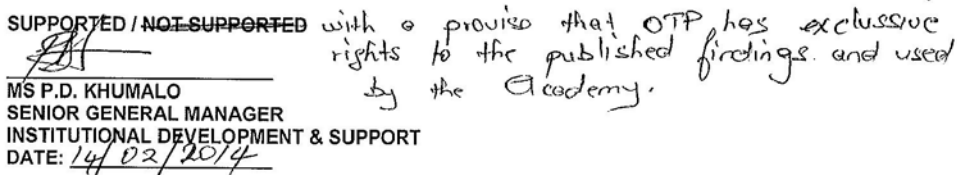 SUPPORTED / NOT SUPPORTED with a proviso that OTP has exclussive
rights to the published findings. and used
by the Academy.
MS P.D. KHUMALO
SENIOR GENERAL MANAGER
INSTITUTIONAL DEVELOPMENT & SUPPORT
DATE: 14/02/2014